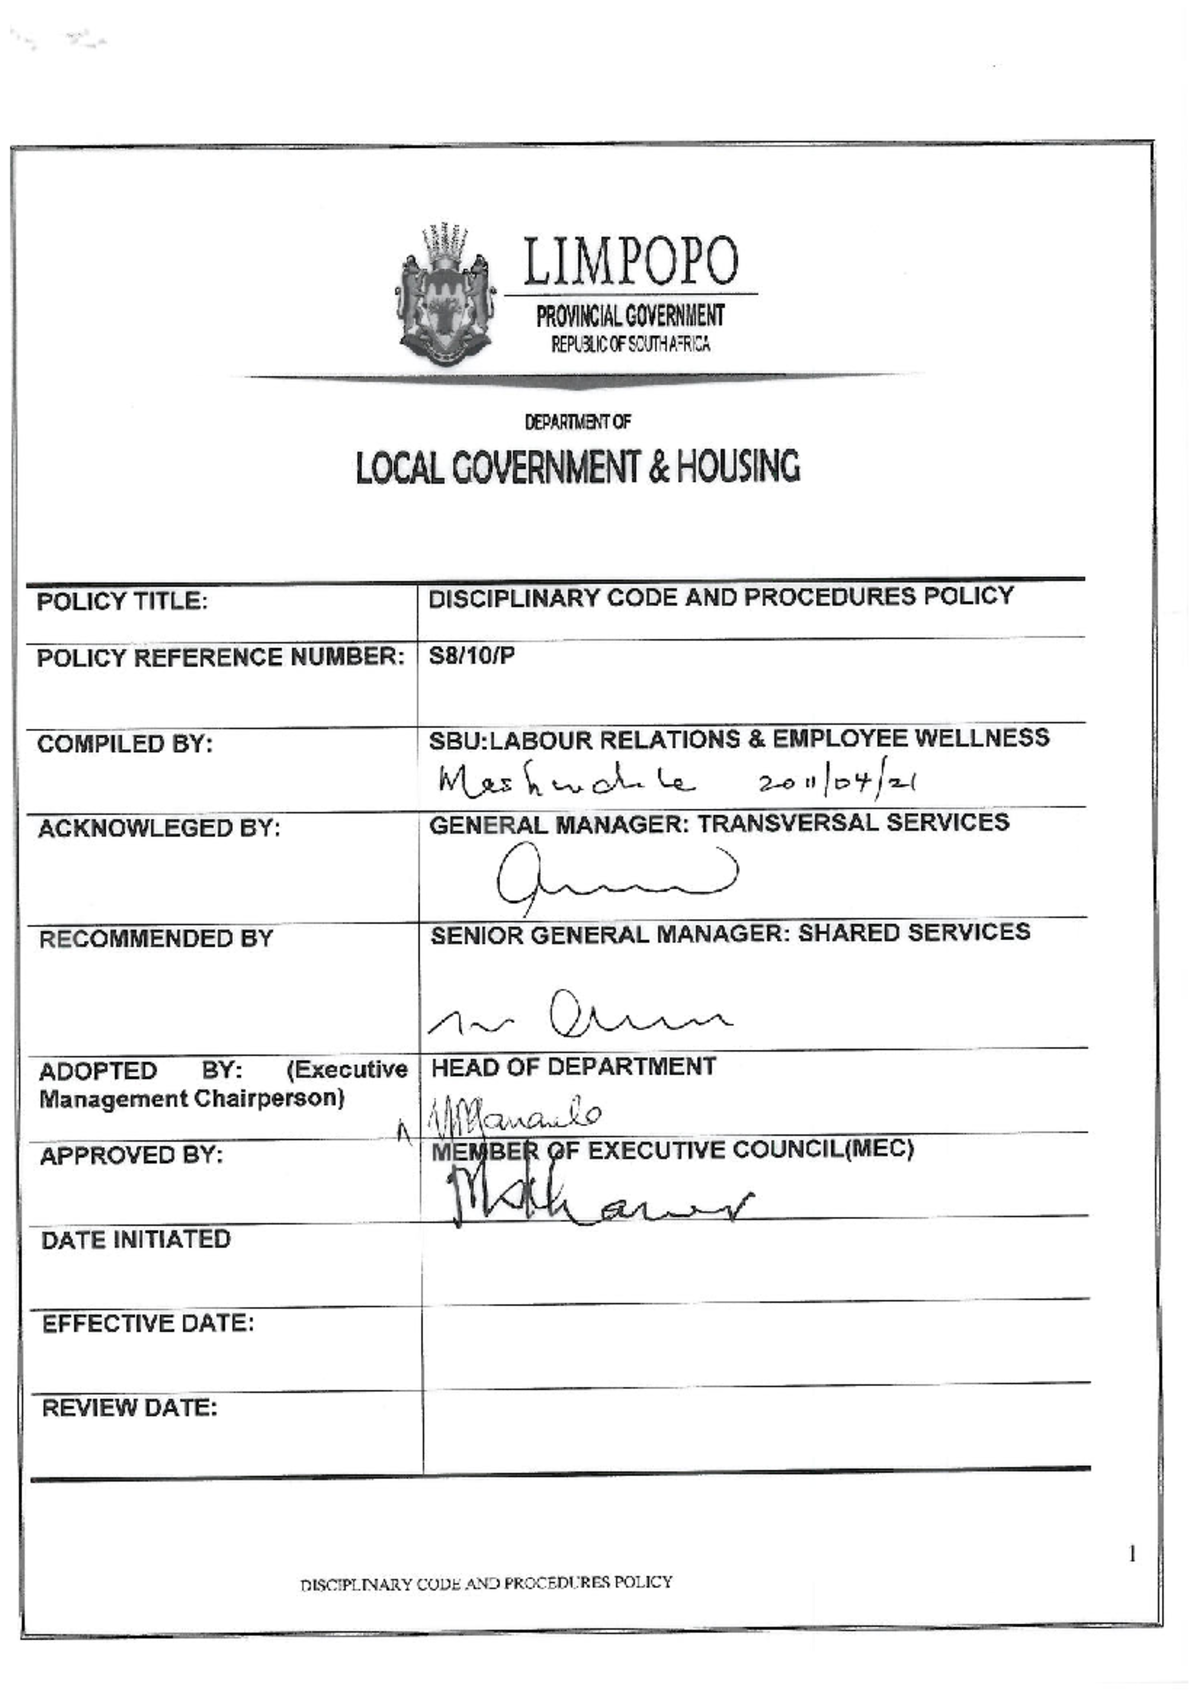 LIMPOPO
PROVINCIAL GOVERNMENT
REPUBLIC OF SOUTH AFRICA
DEPARTMENT OF
LOCAL GOVERNMENT & HOUSING
POLICY TITLE: DISCIPLINARY CODE AND PROCEDURES POLICY
POLICY REFERENCE NUMBER: S8/10/P
COMPILED BY: SBU:LABOUR RELATIONS & EMPLOYEE WELLNESS
2011/04/21
ACKNOWLEGED BY: GENERAL MANAGER: TRANSVERSAL SERVICES
RECOMMENDED BY SENIOR GENERAL MANAGER: SHARED SERVICES
ADOPTED BY: (Executive HEAD OF DEPARTMENT
Management Chairperson)
APPROVED BY: MEMBER OF EXECUTIVE COUNCIL(MEC)
DATE INITIATED
EFFECTIVE DATE:
REVIEW DATE:
1
DISCIPLINARY CODE AND PROCEDURES POLICY